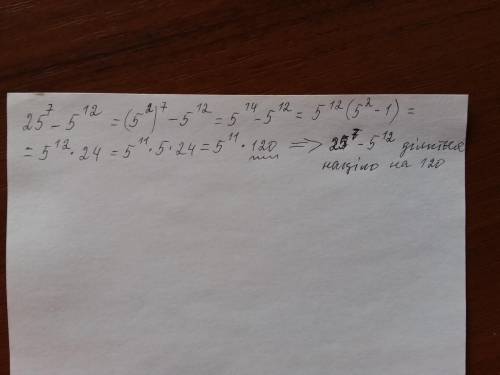 25⁷ - 5¹² = (5²)⁷ - 5¹² = 5¹⁴ - 5¹² = 5¹² (5² - 1) =
= 5¹² · 24 = 5¹¹ · 5 · 24 = 5¹¹ · 120 => 25⁷ - 5¹² ділиться
націло на 120